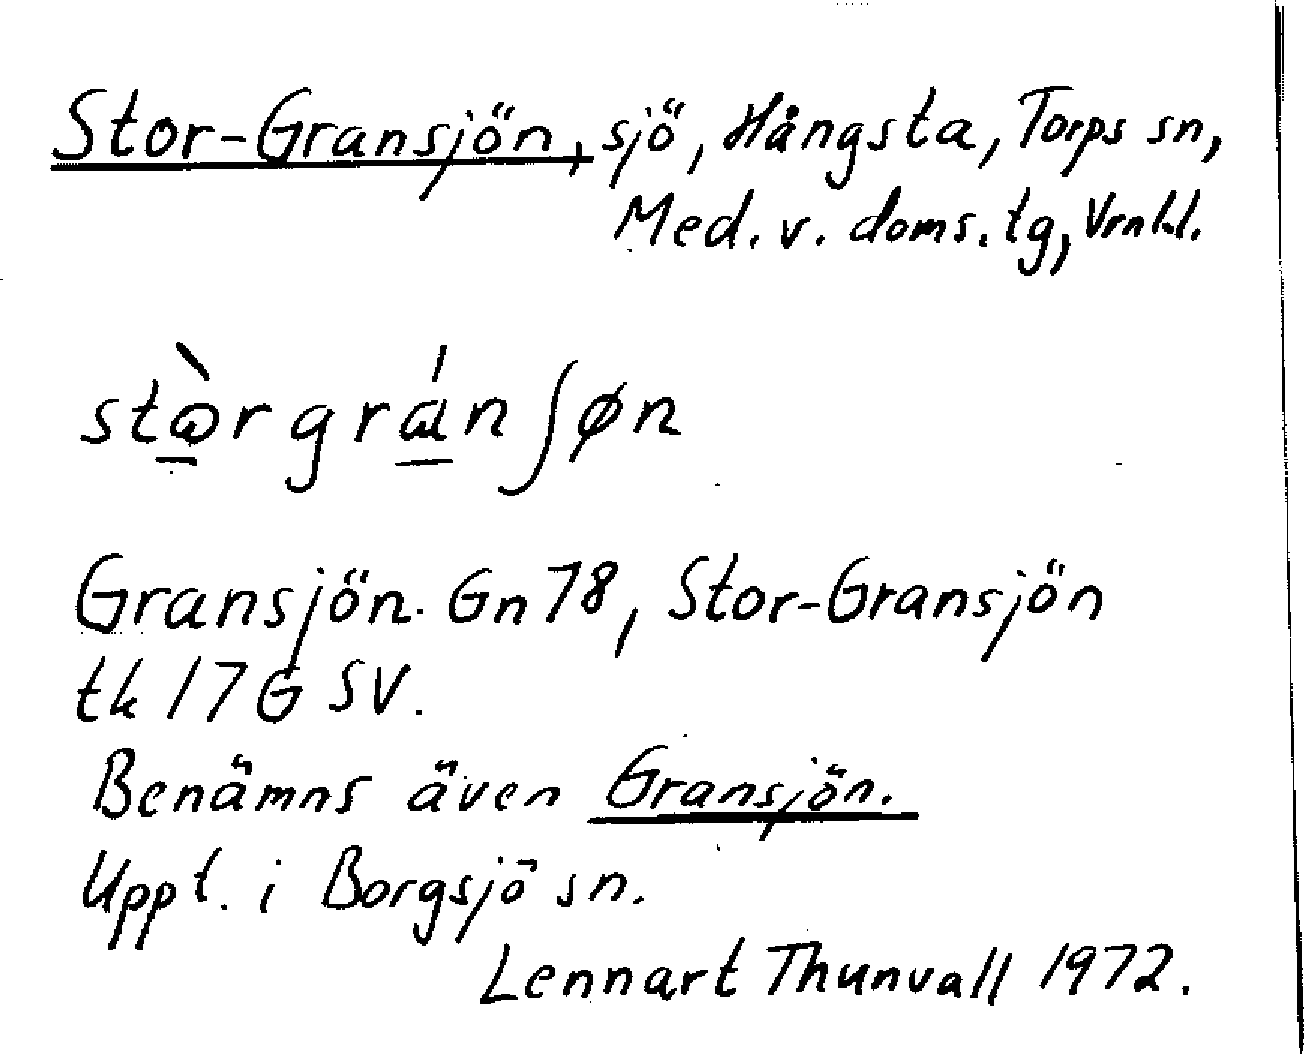 Stor-Gransjön, sjö, Hångsta, Torps sn,
Med. v. doms. tg, Vrnld.
Gransjön. Gn 78, Stor-Gransjön
tk 17 G SV.
Benämns även Gransjön.
Uppt. i Borgsjö sn.
Lennart Thunvall 1972.